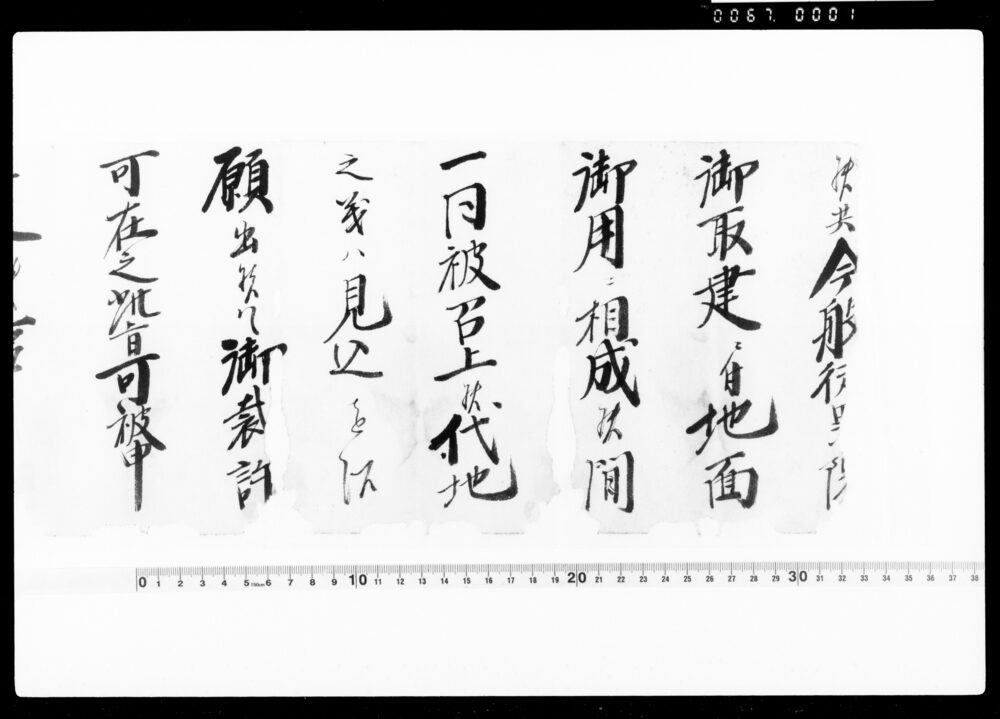 0067. 0001
候共今般
御取建ニ付地面
御用ニ相成候間
一同被召上候代地
之義ハ見込を以
願出候ハヽ御裁許
可在之此旨可被申
0 1 2 3 4 5 150cm 6 7 8 9 10 11 12 13 14 15 16 17 18 19 20 21 22 23 24 25 26 27 28 29 30 31 32 33 34 35 36 37 38